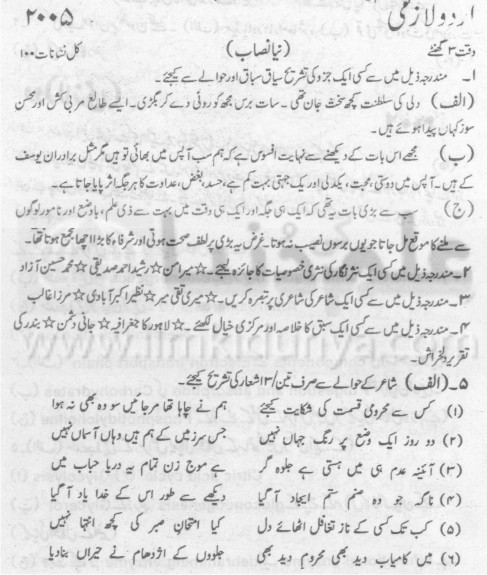 اردو لازمی ۲۰۰۵
وقت ۳ گھنٹے (نیا نصاب) کل نشانات ۱۰۰
۱۔ مندرجہ ذیل میں سے کسی ایک جزو کی تشریح سیاق سباق اور حوالے سے کیجئے۔
(الف) دلی کی سلطنت کچھ سخت جان تھی۔ سات برس مجھ کو روٹی دے کر بگڑی۔ ایسے طالع مربی کش اور محسن
سوز کہاں پیدا ہوئے ہیں۔
(ب) مجھے اس بات کے دیکھنے سے نہایت افسوس ہے کہ ہم سب آپس میں بھائی تو ہیں مگر مثل برادران یوسف
کے ہیں۔ آپس میں دوستی، محبت، یکدلی اور یک جہتی بہت کم ہے، حسد، بغض، عداوت کا ہر جگہ اثر پایا جاتا ہے۔
(ج) سب سے بڑی بات یہ تھی کہ ایک ہی جگہ اور ایک ہی وقت میں بہت سے ذی علم، باوضع اور نامور لوگوں
سے ملنے کا موقع مل جاتا جو یوں برسوں نصیب نہ ہوتا۔ غرض یہ بڑی پر لطف صحبت ہوتی اور شرفاء کا بڑا اچھا مجمع ہوتا تھا۔
۲۔ مندرجہ ذیل میں سے کسی ایک نثر نگار کی نثری خصوصیات کا جائزہ لیجئے۔ ☆ میر امن ☆ رشید احمد صدیقی ☆ محمد حسین آزاد
۳۔ مندرجہ ذیل میں سے کسی ایک شاعر کی شاعری پر تبصرہ کریں۔ ☆ میر تقی میر ☆ نظیر اکبر آبادی ☆ مرزا غالب
۴۔ مندرجہ ذیل میں سے کسی ایک سبق کا خلاصہ اور مرکزی خیال لکھئے۔ ☆ لاہور کا جغرافیہ ☆ جانی دشمن ☆ بندر کی
تقریر دلخراش۔
www.ilmkidunya.com
۵۔ (الف) شاعر کے حوالے سے صرف تین/۳ اشعار کی تشریح کیجئے۔
(۱) کس سے محرومی قسمت کی شکایت کیجئے ہم نے چاہا تھا مر جائیں سو وہ بھی نہ ہوا
(۲) دو روز ایک وضع پر رنگ جہاں نہیں جس سرزمیں کے ہم ہیں وہاں آسماں نہیں
(۳) آئینہ عدم ہی میں ہستی ہے جلوہ گر ہے موج زن تمام یہ دریا حباب میں
(۴) ناگہ جو وہ صنم ستم ایجاد آ گیا دیکھے سے طور اس کے خدا یاد آ گیا
(۵) کب تک کسی کے ناز تغافل اٹھائے دل کیا امتحان صبر کی کچھ انتہا نہیں
(۶) میں کامیاب دید بھی محروم دید بھی جلووں کے اژدحام نے حیراں بنا دیا